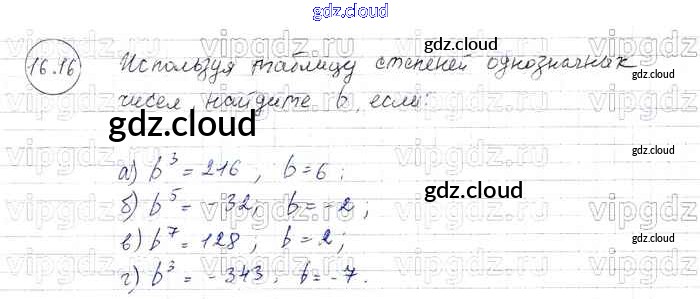 gdz.cloud
16.16 Используя таблицу степеней однозначных
gdz.cloud
чисел найдите b, если:
gdz.cloud
gdz.cloud
а) b³ = 216, b = 6;
б) b⁵ = -32; b = -2;
gdz.cloud
в) b⁷ = 128, b = 2;
gdz.cloud
г) b³ = -343, b = -7.